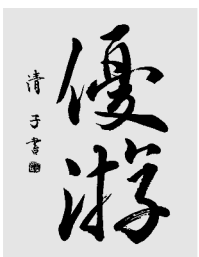 優游
清子書